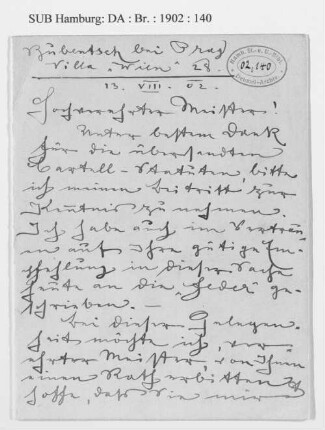 SUB Hamburg: DA : Br. : 1902 : 140
Bubentsch bei Prag
Villa „Wien" 28.
02,140
13. VIII. 02.
Hochverehrter Meister!
Unter bestem Dank
für die übersandten
Cartell-Statuten, bitte
ich meinen Beitritt zur
Kenntnis zu nehmen.
Ich habe auch im Vertrau-
en auf Ihre gütige Em-
pfehlung in dieser Sache
heute an die „Feder" ge-
schrieben. —
Bei dieser Gelegen-
heit möchte ich, ver-
ehrter Meister, von Ihnen
einen Rath erbitten &
hoffe, dass Sie mir